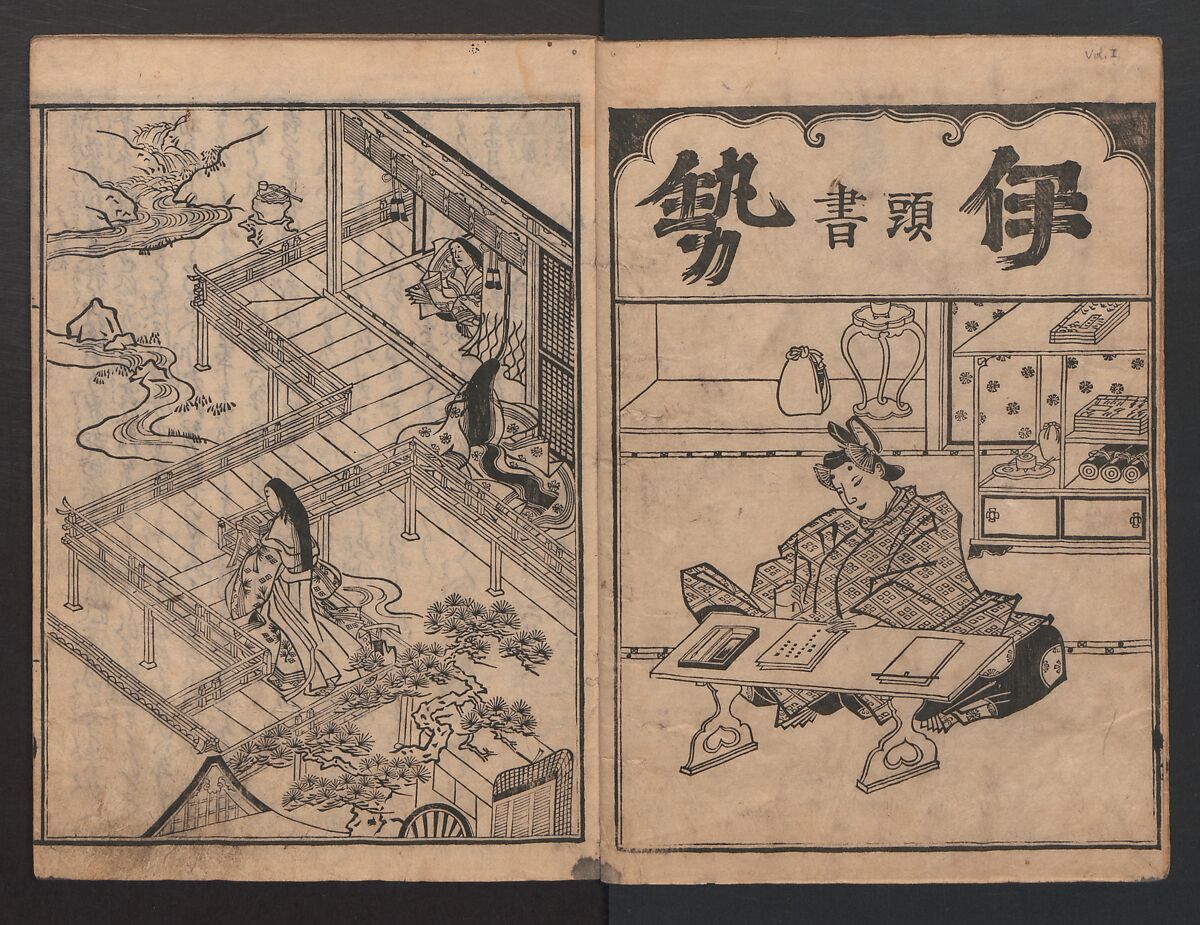 Vol. I
伊
頭
書
勢